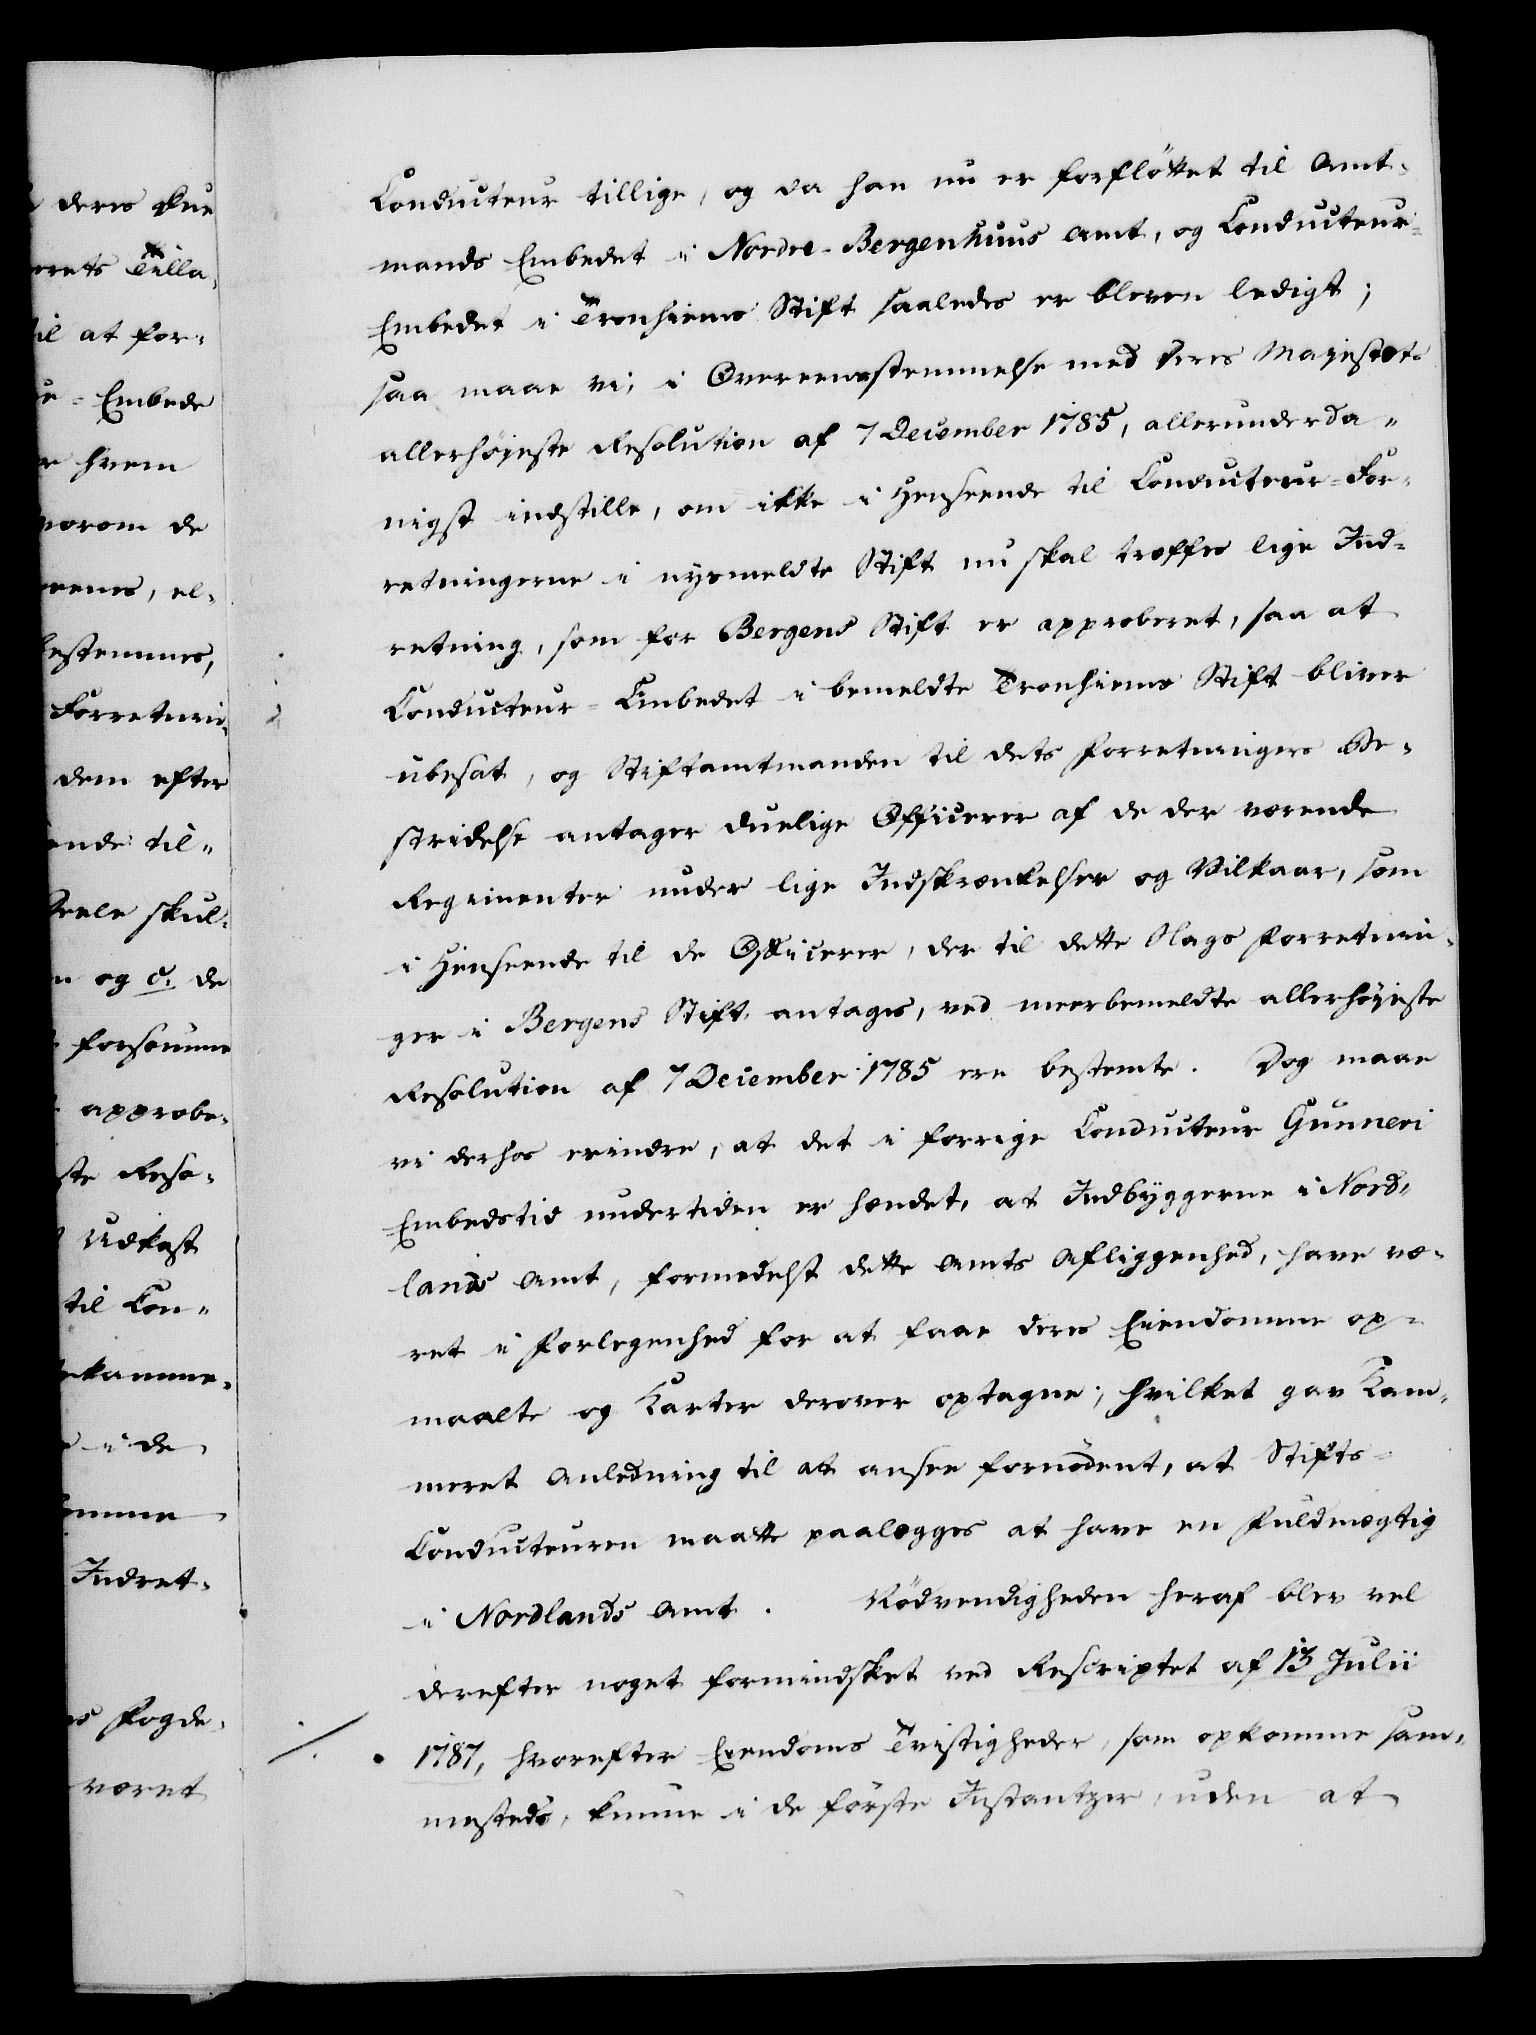 deres Due
orets Tilla-
til at for-
ur-Embede
er hvem
vorom de
erens, el-
bestemmes,
Forretnin-
dem efter
ende til-
deele skul-
n og c. de
forsømme
approbe-
ste Reso-
Udkast
til Con-
ekomme-
e i de
omme
Indret-
s Fogde-
været
Conducteur tillige, og da han nu er forfløttet til Amt-
mands Embedet i Nordre-Bergenhuus Amt, og Conducteur-
Embedet i Tronhiems Stift saaledes er bleven ledigt;
saa maae vi, i Overeensstemmelse med Deres Majestæts
allerhøjeste Resolution af 7 December 1785, allerunderda-
nigst indstille, om ikke i Henseende til Conducteur-For-
retningerne i nysmeldte Stift nu skal træffes lige Ind-
retning, som for Bergens Stift er approberet, saa at
Conducteur-Embedet i bemeldte Tronhiems Stift bliver
ubesat, og Stiftamtmanden til dets Forretningers Be-
stridelse antager duelige Officerer af de der værende
Regimenter under lige Indskrænkelser og Vilkaar, som
i Henseende til de Officerer, der til dette Slags Forretnin-
ger i Bergens Stift antages, ved meerbemeldte allerhøjeste
Resolution af 7 December 1785 ere bestemte. Dog maae
vi derhos erindre, at det i forrige Conducteur Gunneri
Embedstid undertiden er hændet, at Indbyggerne i Nord-
lands Amt, formedelst dette Amts Afliggenhed, have væ-
ret i Forlegenhed for at faae deres Eiendomme op-
maalte og Karter derover optagne; hvilket gav Kam-
meret Anledning til at ansee fornødent, at Stifts-
Conducteuren maatte paalægges at have en Fuldmægtig
i Nordlands Amt. Nødvendigheden heraf blev vel
derefter noget formindsket ved Rescriptet af 13 Julii
1787, hvorefter Eiendoms Tvistigheder, som opkomme sam-
mesteds, kunne i de første Instantzer, uden at